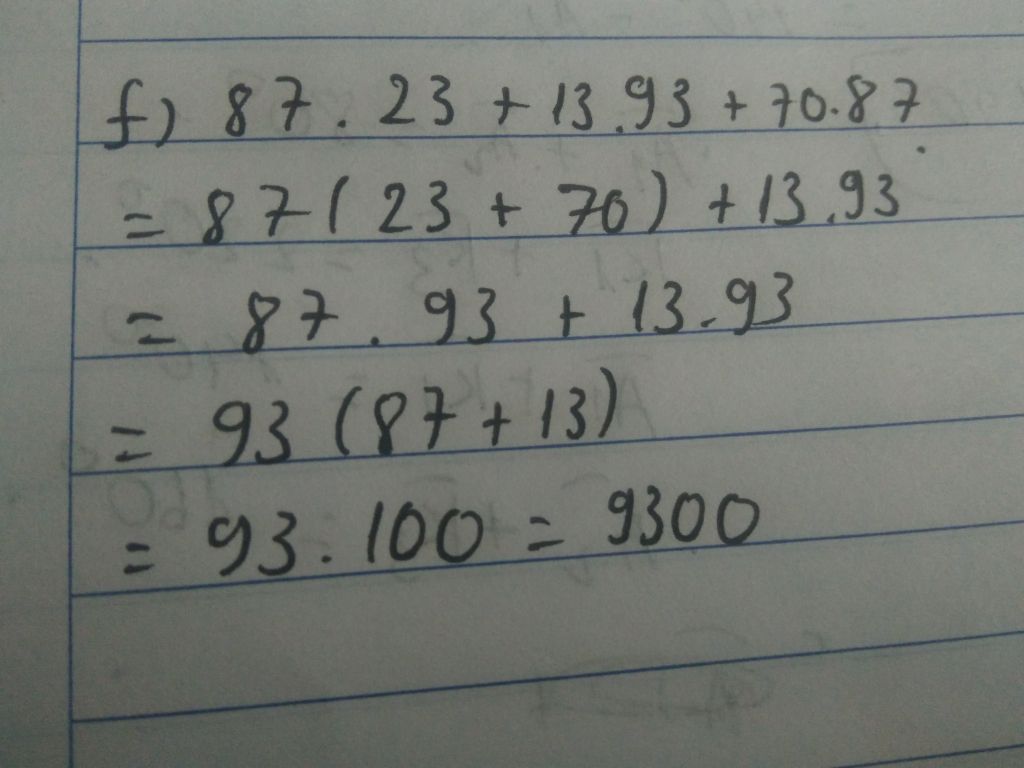 f) 87. 23 + 13.93 + 70.87
= 87( 23 + 70) + 13.93
= 87 . 93 + 13.93
= 93 (87 + 13)
= 93. 100 = 9300